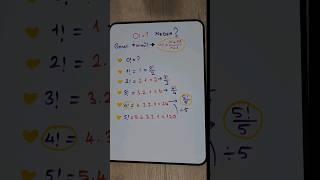 0! = 1 Neden?
0! = ?
1! = 1 = 2!/2
2! = 2.1 = 2 → 3!/3
3! = 3.2.1 = 6 → 4!/4
4! = 4.3.2.1 = 24 → 5!/5
÷5
5! = 5.4.3.2.1 = 120
1! = 1
2! = 2.
3! = 3.
4! =
5! = 5.
5!/5
÷5